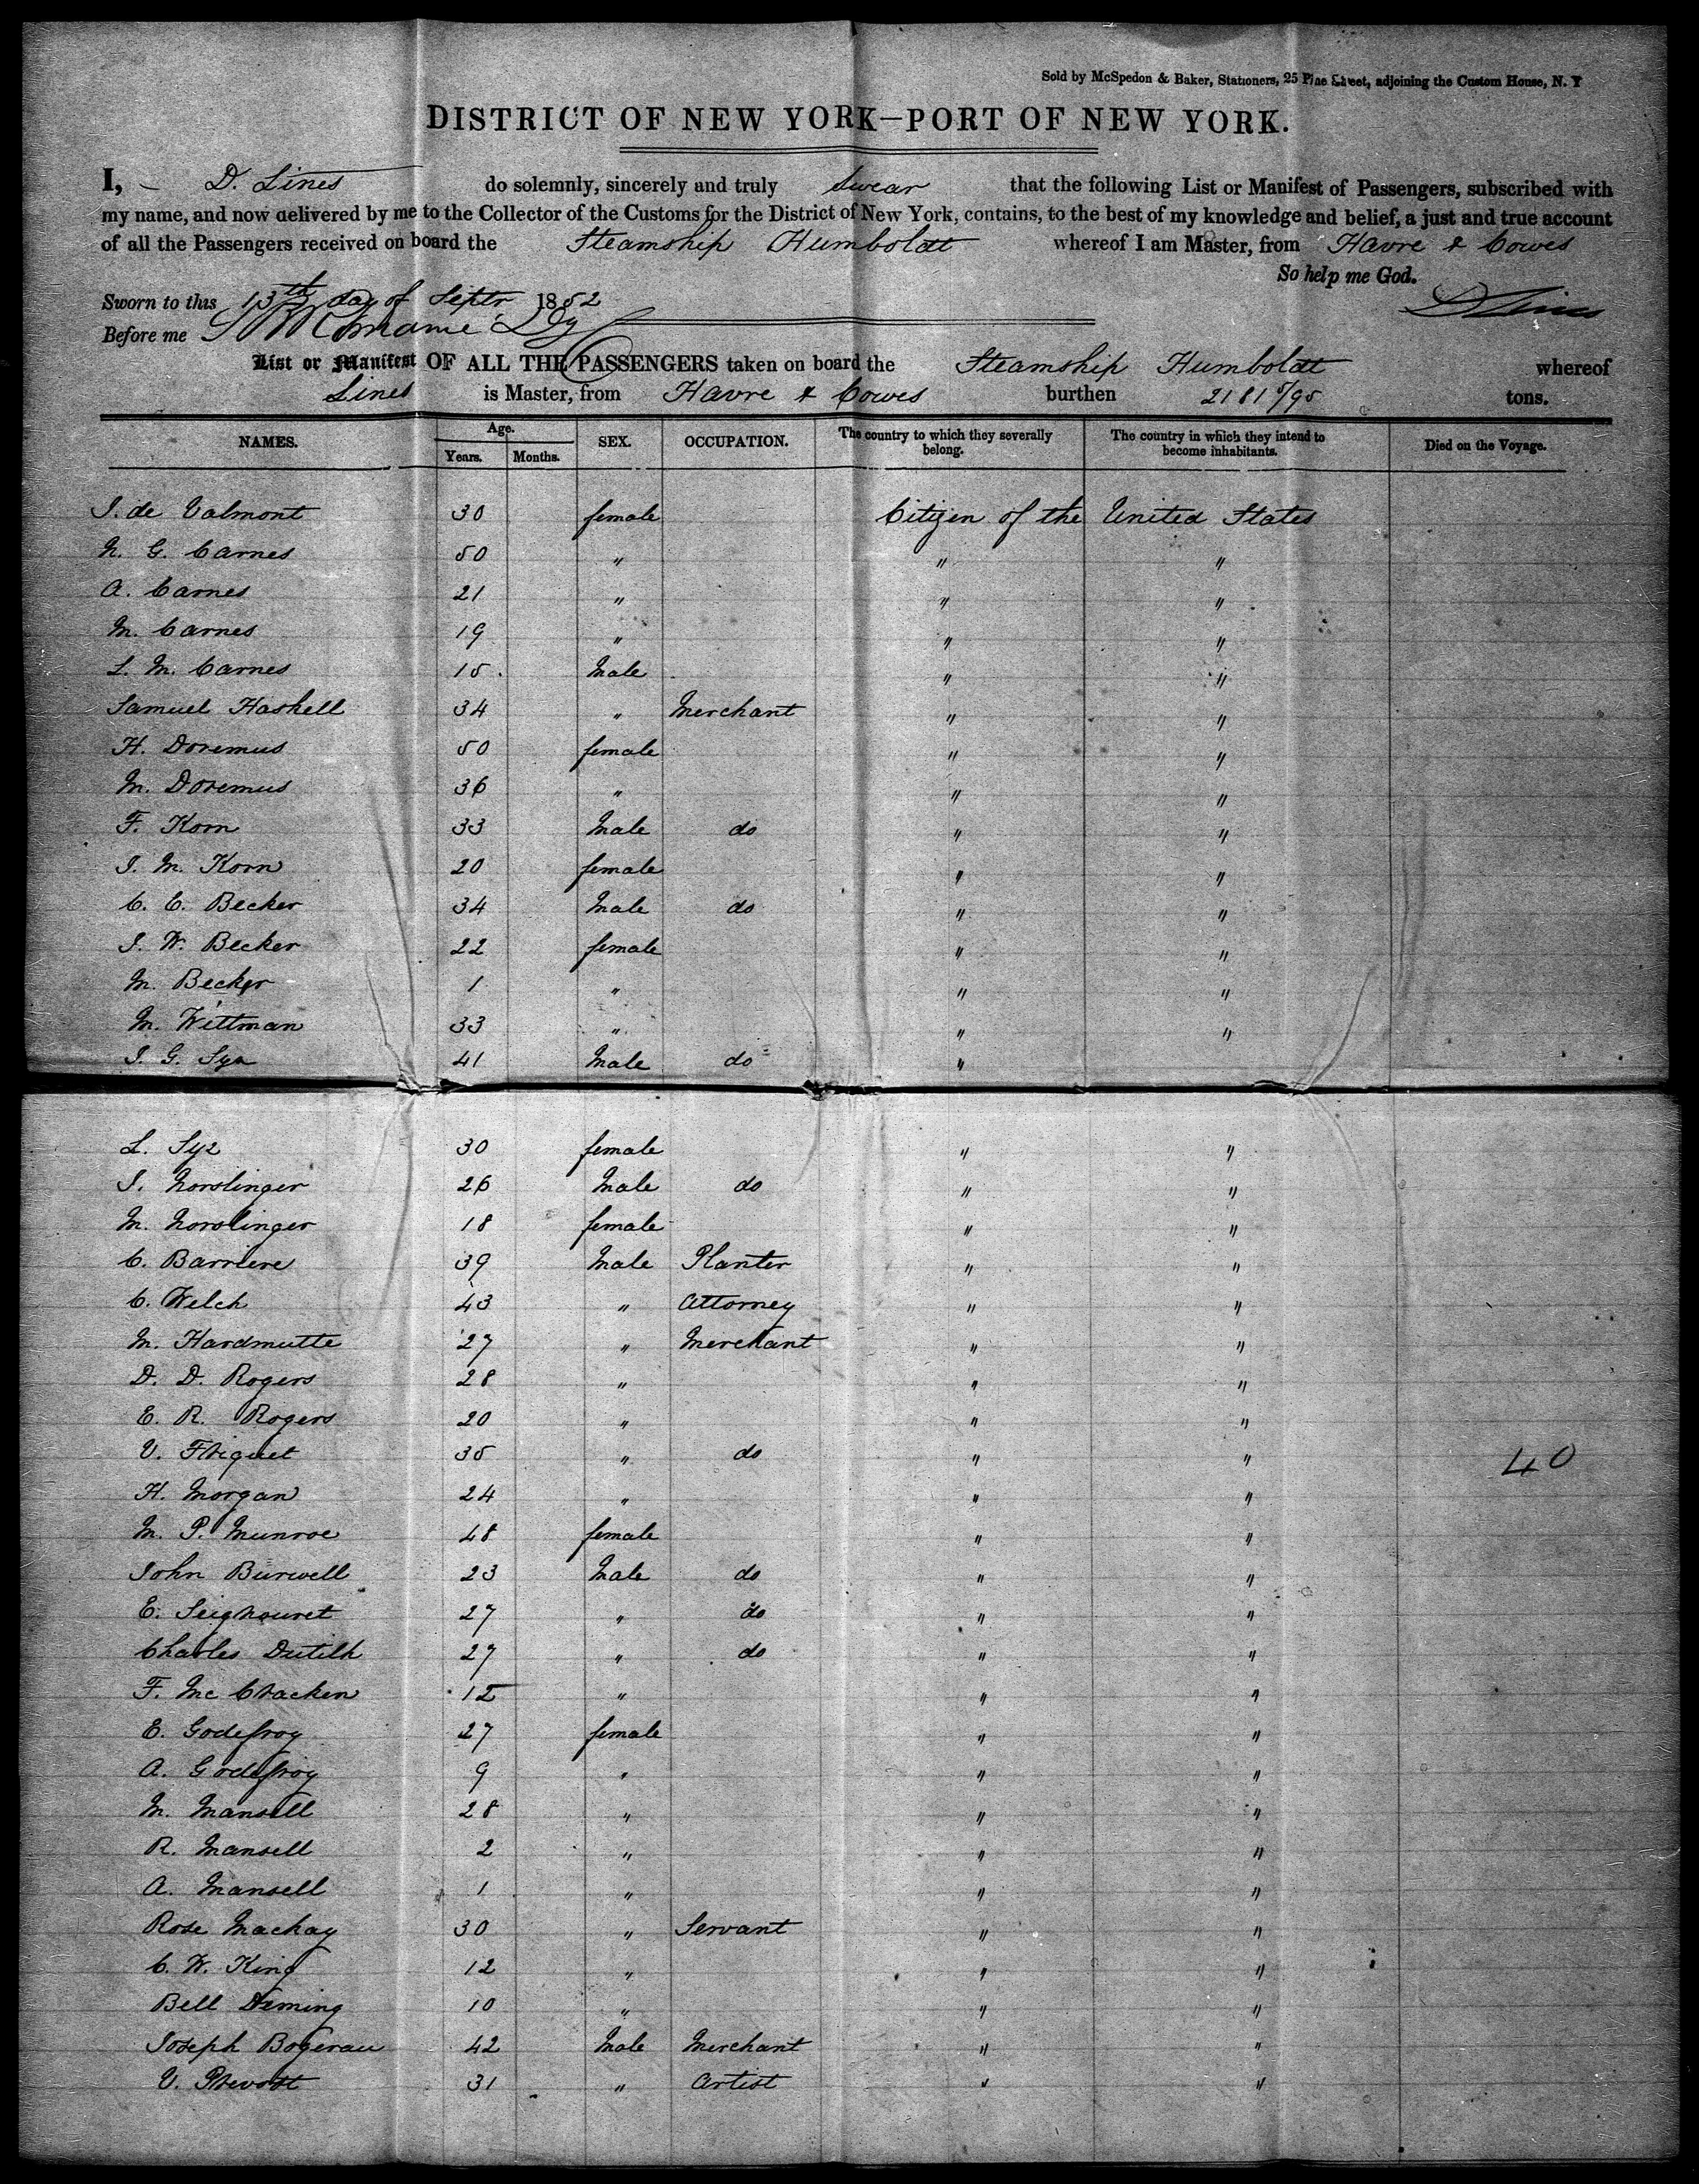 Sold by McSpedon & Baker, Stationers, 25 Pine Street, adjoining the Custom House, N. Y
DISTRICT OF NEW YORK—PORT OF NEW YORK.
I, D. Lines do solemnly, sincerely and truly Swear that the following List or Manifest of Passengers, subscribed with
my name, and now delivered by me to the Collector of the Customs for the District of New York, contains, to the best of my knowledge and belief, a just and true account
of all the Passengers received on board the Steamship Humboldt whereof I am Master, from Havre & Cowes
So help me God.
Sworn to this 13th day of Septr 1852 D Lines
Before me
List or Manifest OF ALL THE PASSENGERS taken on board the Steamship Humboldt whereof
Lines is Master, from Havre & Cowes burthen 2181 5/95 tons.
NAMES. Age. Years. Months. SEX. OCCUPATION. The country to which they severally belong. The country in which they intend to become inhabitants. Died on the Voyage.
J. de Valmont 30 female Citizen of the United States
N. G. Carnes 50 " " "
A. Carnes 21 " " "
M. Carnes 19 " " "
L. M. Carnes 15 Male " "
Samuel Haskell 34 " Merchant " "
H. Doremus 50 female " "
M. Doremus 36 " " "
F. Korn 33 Male do " "
J. M. Korn 20 female " "
C. E. Becker 34 Male do " "
J. W. Becker 22 female " "
M. Becker 1 " " "
M. Wittman 33 " " "
J. G. Syz 41 Male do "
L. Syz 30 female " "
J. Norslinger 26 Male do " "
M. Norslinger 18 female " "
C. Barriere 39 Male Planter " "
C. Welch 43 " Attorney " "
M. Hardmutte 27 " Merchant " "
D. D. Rogers 28 " " "
E. R. Rogers 20 " " "
V. Friquet 35 " do " " 40
H. Morgan 24 " " "
M. P. Munroe 48 female " "
John Burwell 23 Male do " "
E. Seighouret 27 " do " "
Charles Dutilh 27 " do " "
F. Mc Cracken 12 " " "
E. Godefroy 27 female " "
A. Godefroy 9 " " "
M. Mansell 28 " " "
R. Mansell 2 " " "
A. Mansell 1 " " "
Rose Mackay 30 " Servant " "
C. W. King 12 " " "
Bell Deming 10 " " "
Joseph Bogerau 42 Male Merchant " "
V. Prevost 31 " Artist " "